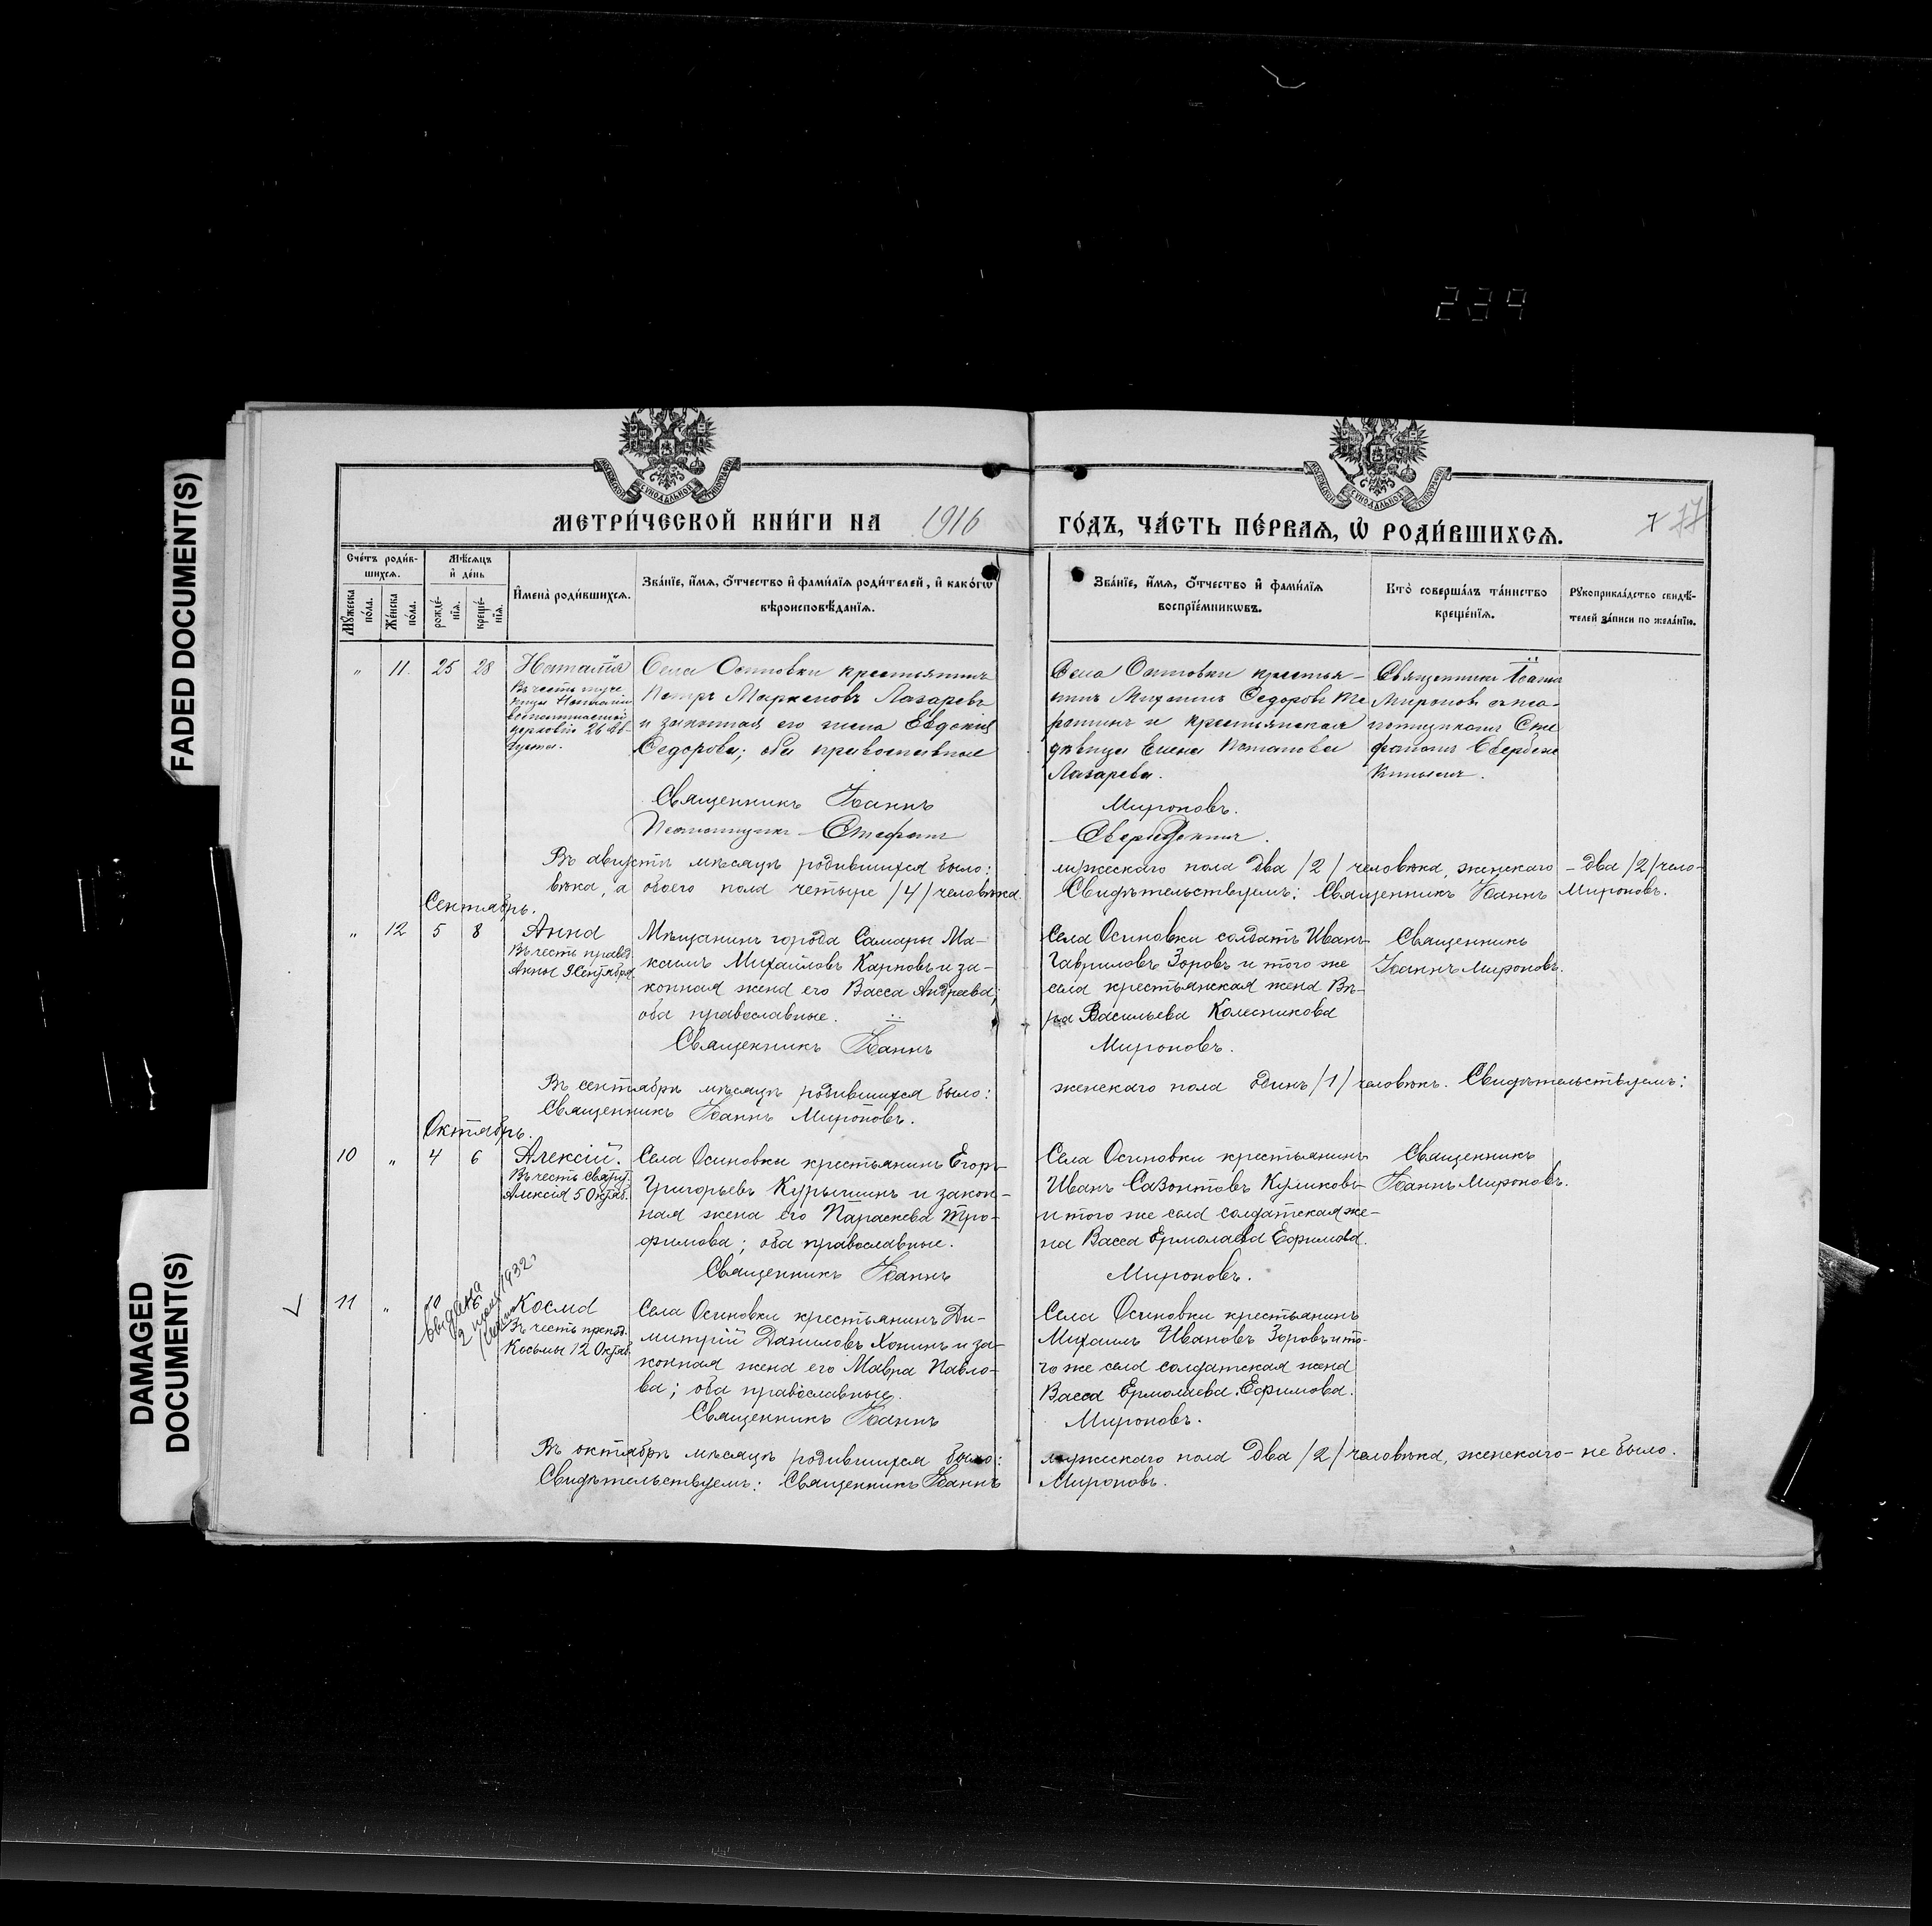 239
FADED DOCUMENT(S)
DAMAGED
DOCUMENT(S)
МЕТРИ́ЧЕСКОЙ КНИ́ГИ НА 1916 ГО́ДЪ, ЧА́СТЬ ПЕ́РВАЯ, Ѡ РОДИ́ВШИХСЯ.
7 77
Сче́тъ роди́в-
шихся.
Мѣ́сяцъ
и҆ де́нь
Мꙋ́жеска
по́ла.
Же́нска
по́ла.
рожде́-
нїѧ.
креще́-
нїѧ.
И҆мена̀ роди́вшихся.
Зва́нїе, и҆́мѧ, ѻ҆́тчество и҆ фами́лїѧ роди́телей, и҆ како́гѡ
вѣроисповѣ́данїѧ.
Зва́нїе, и҆́мѧ, ѻ҆́тчество и҆ фами́лїѧ
воспрїе́мникѡвъ.
Кто̀ соверша́лъ та́инство
креще́нїѧ.
Рꙋкоприкла́дство свидѣ́-
телей за́писи по жела́нїю.
" 11. 25 28 Наталія
Въ честь муче-
ницы Наталіи
воспоминаемой
церковію 26 Ав-
густа.
Села Осиновки крестьянинъ
Петръ Маркеловъ Лазаревъ
и законная его жена Евдокія
Ѳедорова; оба православные
Села Осиновки крестья-
нинъ Михаилъ Ѳедоровъ
и крестьянская
дѣвица Елена
Лазарева.
Священникъ Іоаннъ
Мироновъ съ пса-
ломщикомъ Сте
фаномъ
Священникъ Іоаннъ Мироновъ.
Псаломщикъ Стефанъ
Въ августѣ мѣсяцѣ родившихся было: мужескаго пола два /2/ человѣка, женскаго – два /2/ чело-
вѣка, а обоего пола четыре /4/ человѣка. Свидѣтельствуемъ: Священникъ Іоаннъ Мироновъ.
Сентябрь.
" 12 5 8 Анна
Въ честь правед.
Анны 9 Сентября
Мѣщанинъ города Самары Ма-
ксимъ Михайловъ Карповъ и за-
конная жена его Васса Андреева;
оба православные.
Села Осиновки солдатъ Иванъ
Гавриловъ Зоровъ и того же
села крестьянская жена Вѣ-
ра Васильева Колесникова
Священникъ
Іоаннъ Мироновъ.
Священникъ Іоаннъ Мироновъ.
Въ сентябрѣ мѣсяцѣ родившихся было: женскаго пола одинъ /1/ человѣкъ. Свидѣтельствуемъ:
Священникъ Іоаннъ Мироновъ.
Октябрь.
10 " 4 6 Алексій.
Въ честь святит.
Алексія 5 Октяб.
Села Осиновки крестьянинъ Егоръ
Григорьевъ Курышинъ и закон-
ная жена его Параскева Тро-
фимова; оба православные.
Села Осиновки крестьянинъ
Иванъ Савонтовъ Куликовъ
и того же села солдатская же-
на Васса Ермолаева Ефимова.
Священникъ
Іоаннъ Мироновъ.
Священникъ Іоаннъ Мироновъ.
11 " 10
выдана
1932
Косма
Въ честь препод.
Косьмы 12 Октяб.
Села Осиновки крестьянинъ Ди-
митрій Даниловъ Хонинъ и за-
конная жена его Мавра Павло-
ва; оба православные.
Села Осиновки крестьянинъ
Михаилъ Ивановъ Зоровъ и то-
го же села солдатская жена
Васса Ермолаева Ефимова.
Священникъ Іоаннъ Мироновъ.
Въ октябрѣ мѣсяцѣ родившихся было: мужескаго пола два /2/ человѣка, женскаго – не было.
Свидѣтельствуемъ: Священникъ Іоаннъ Мироновъ.